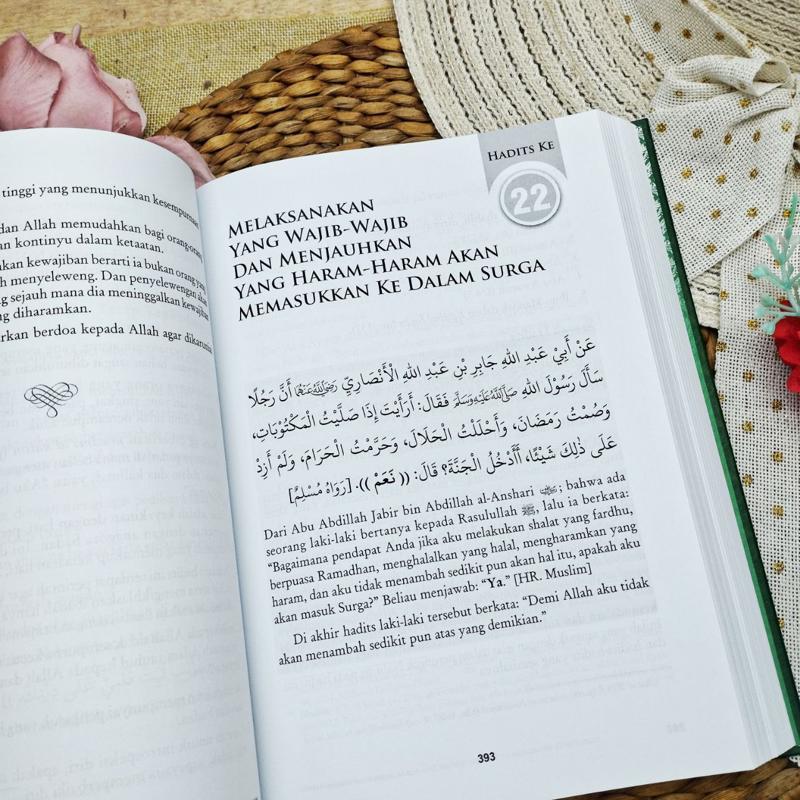 tinggi yang menunjukkan kesempurnaan
dan Allah memudahkan bagi orang-orang
an kontinyu dalam ketaatan.
akan kewajiban berarti ia bukan orang yang
h menyeleweng. Dan penyelewengan akan
g sejauh mana dia meninggalkan kewajiban
ng diharamkan.
rkan berdoa kepada Allah agar dikarunia
HADITS KE
22
MELAKSANAKAN
YANG WAJIB-WAJIB
DAN MENJAUHKAN
YANG HARAM-HARAM AKAN
MEMASUKKAN KE DALAM SURGA
عَنْ أَبِيْ عَبْدِ اللهِ جَابِرِ بْنِ عَبْدِ اللهِ الْأَنْصَارِيِّ رَضِيَ اللهُ عَنْهُمَا أَنَّ رَجُلًا
سَأَلَ رَسُوْلَ اللهِ صَلَّى اللهُ عَلَيْهِ وَسَلَّمَ فَقَالَ: أَرَأَيْتَ إِذَا صَلَّيْتُ الْمَكْتُوْبَاتِ،
وَصُمْتُ رَمَضَانَ، وَأَحْلَلْتُ الْحَلَالَ، وَحَرَّمْتُ الْحَرَامَ، وَلَمْ أَزِدْ
عَلَى ذٰلِكَ شَيْئًا، أَأَدْخُلُ الْجَنَّةَ؟ قَالَ: (( نَعَمْ )). [رَوَاهُ مُسْلِمٌ]
Dari Abu Abdillah Jabir bin Abdillah al-Anshari ; bahwa ada
seorang laki-laki bertanya kepada Rasulullah ﷺ, lalu ia berkata:
“Bagaimana pendapat Anda jika aku melakukan shalat yang fardhu,
berpuasa Ramadhan, menghalalkan yang halal, mengharamkan yang
haram, dan aku tidak menambah sedikit pun akan hal itu, apakah aku
akan masuk Surga?” Beliau menjawab: “Ya.” [HR. Muslim]
Di akhir hadits laki-laki tersebut berkata: “Demi Allah aku tidak
akan menambah sedikit pun atas yang demikian.”
393